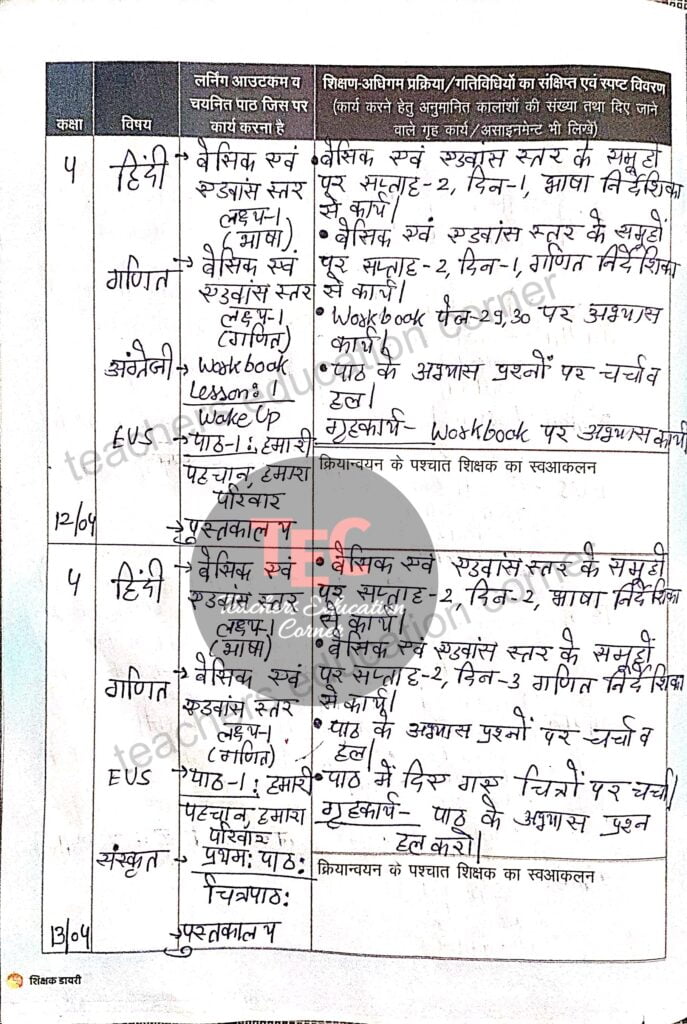 कक्षा
विषय
लर्निंग आउटकम व
चयनित पाठ जिस पर
कार्य करना है
शिक्षण-अधिगम प्रक्रिया/गतिविधियों का संक्षिप्त एवं स्पष्ट विवरण
(कार्य करने हेतु अनुमानित कालांशों की संख्या तथा दिए जाने
वाले गृह कार्य/असाइनमेंट भी लिखें)
4
हिंदी
→ बेसिक एवं
एडवांस स्तर
लक्ष्य-1
(भाषा)
• बेसिक एवं एडवांस स्तर के समूहों
पर सप्ताह-2, दिन-1, भाषा निर्देशिका
से कार्य।
गणित
→ बेसिक एवं
एडवांस स्तर
लक्ष्य-1
(गणित)
• बेसिक एवं एडवांस स्तर के समूहों
पर सप्ताह-2, दिन-1, गणित निर्देशिका
से कार्य।
अंग्रेजी
→ Workbook
Lesson: 1
Wake Up
• Workbook पेज-29,30 पर अभ्यास
कार्य।
EVS
→ पाठ-1: हमारी
पहचान, हमारा
परिवार
• पाठ के अभ्यास प्रश्नों पर चर्चा व
हल।
गृहकार्य- Workbook पर अभ्यास कार्य
क्रियान्वयन के पश्चात शिक्षक का स्वआकलन
12/04
→ पुस्तकालय
4
हिंदी
→ बेसिक एवं
एडवांस स्तर
लक्ष्य-1
(भाषा)
• बेसिक एवं एडवांस स्तर के समूहों
पर सप्ताह-2, दिन-2, भाषा निर्देशिका
से कार्य।
गणित
→ बेसिक एवं
एडवांस स्तर
लक्ष्य-1
(गणित)
• बेसिक एवं एडवांस स्तर के समूहों
पर सप्ताह-2, दिन-3 गणित निर्देशिका
से कार्य।
EVS
→ पाठ-1: हमारी
पहचान, हमारा
परिवार
• पाठ के अभ्यास प्रश्नों पर चर्चा व
हल।
संस्कृत
→ प्रथम: पाठ:
चित्रपाठ:
• पाठ में दिए गए चित्रों पर चर्चा।
गृहकार्य- पाठ के अभ्यास प्रश्न
हल करो।
क्रियान्वयन के पश्चात शिक्षक का स्वआकलन
13/04
→ पुस्तकालय
शिक्षक डायरी
teachers education corner
TEC
Teachers Education
Corner
teachers education corner